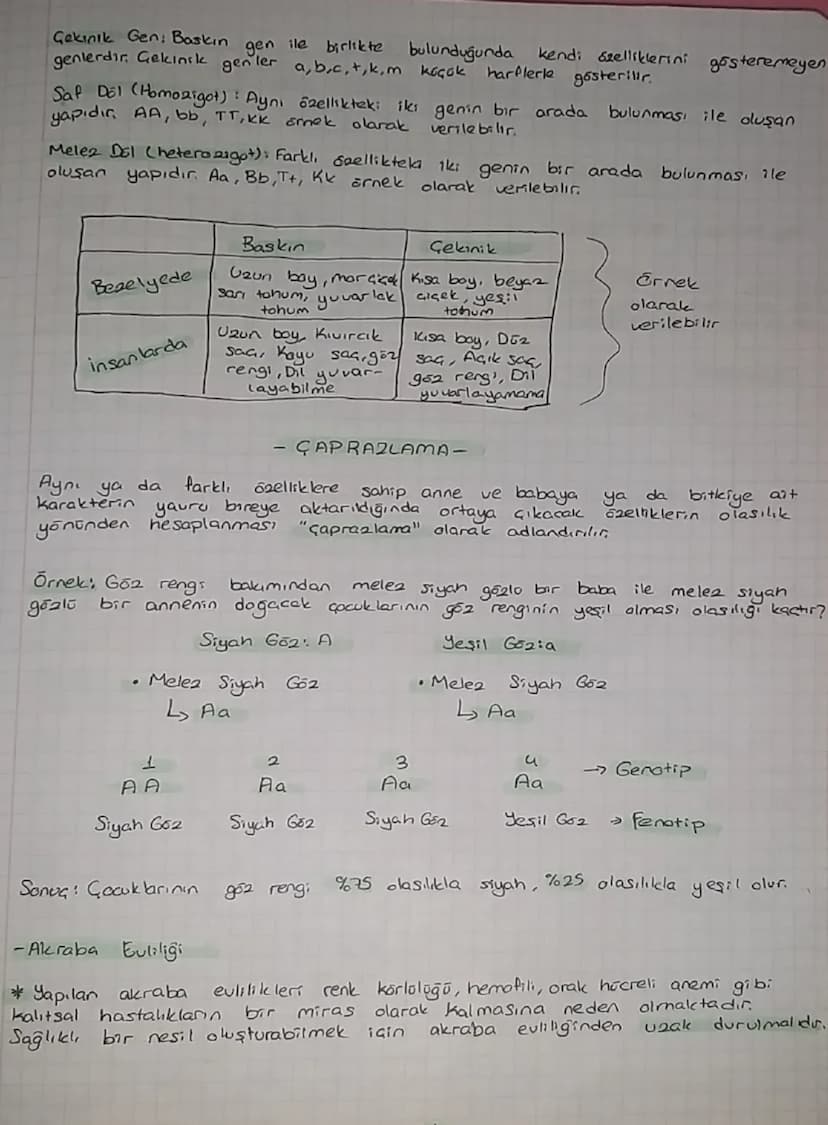 Çekinik Gen: Baskın gen ile birlikte bulunduğunda kendi özelliklerini gösteremeyen
genlerdir. Çekinik genler a,b,c,t,k,m küçük harflerle gösterilir.
Saf Döl (Homozigot): Aynı özellikteki iki genin bir arada bulunması ile oluşan
yapıdır. AA, bb, TT, kk örnek olarak verilebilir.
Melez Döl (heterozigot): Farklı özellikteki iki genin bir arada bulunması ile
oluşan yapıdır. Aa, Bb, Tt, Kk örnek olarak verilebilir.
Baskın Çekinik
Bezelyede
Uzun boy, mor çiçek
sarı tohum, yuvarlak
tohum
Kısa boy, beyaz
çiçek, yeşil
tohum
insanlarda
Uzun boy, Kıvırcık
saç, Koyu saç, göz
rengi, Dil yuvar-
layabilme
Kısa boy, Düz
saç, Açık saç,
göz rengi, Dil
yuvarlayamama
Örnek
olarak
verilebilir
- ÇAPRAZLAMA -
Aynı ya da farklı özelliklere sahip anne ve babaya ya da bitkiye ait
karakterin yavru bireye aktarıldığında ortaya çıkacak özelliklerin olasılık
yönünden hesaplanması "çaprazlama" olarak adlandırılır.
Örnek: Göz rengi bakımından melez siyah gözlü bir baba ile melez siyah
gözlü bir annenin doğacak çocuklarının göz renginin yeşil olması olasılığı kaçtır?
Siyah Göz: A Yeşil Göz: a
• Melez Siyah Göz • Melez Siyah Göz
↳ Aa ↳ Aa
1 2 3 4
AA Aa Aa Aa → Genotip
Siyah Göz Siyah Göz Siyah Göz Yeşil Göz → Fenotip
Sonuç: Çocuklarının göz rengi %75 olasılıkla siyah, %25 olasılıkla yeşil olur.
- Akraba Evliliği
* Yapılan akraba evlilikleri renk körlüğü, hemofili, orak hücreli anemi gibi
kalıtsal hastalıkların bir miras olarak kalmasına neden olmaktadır.
Sağlıklı bir nesil oluşturabilmek için akraba evliliğinden uzak durulmalıdır.